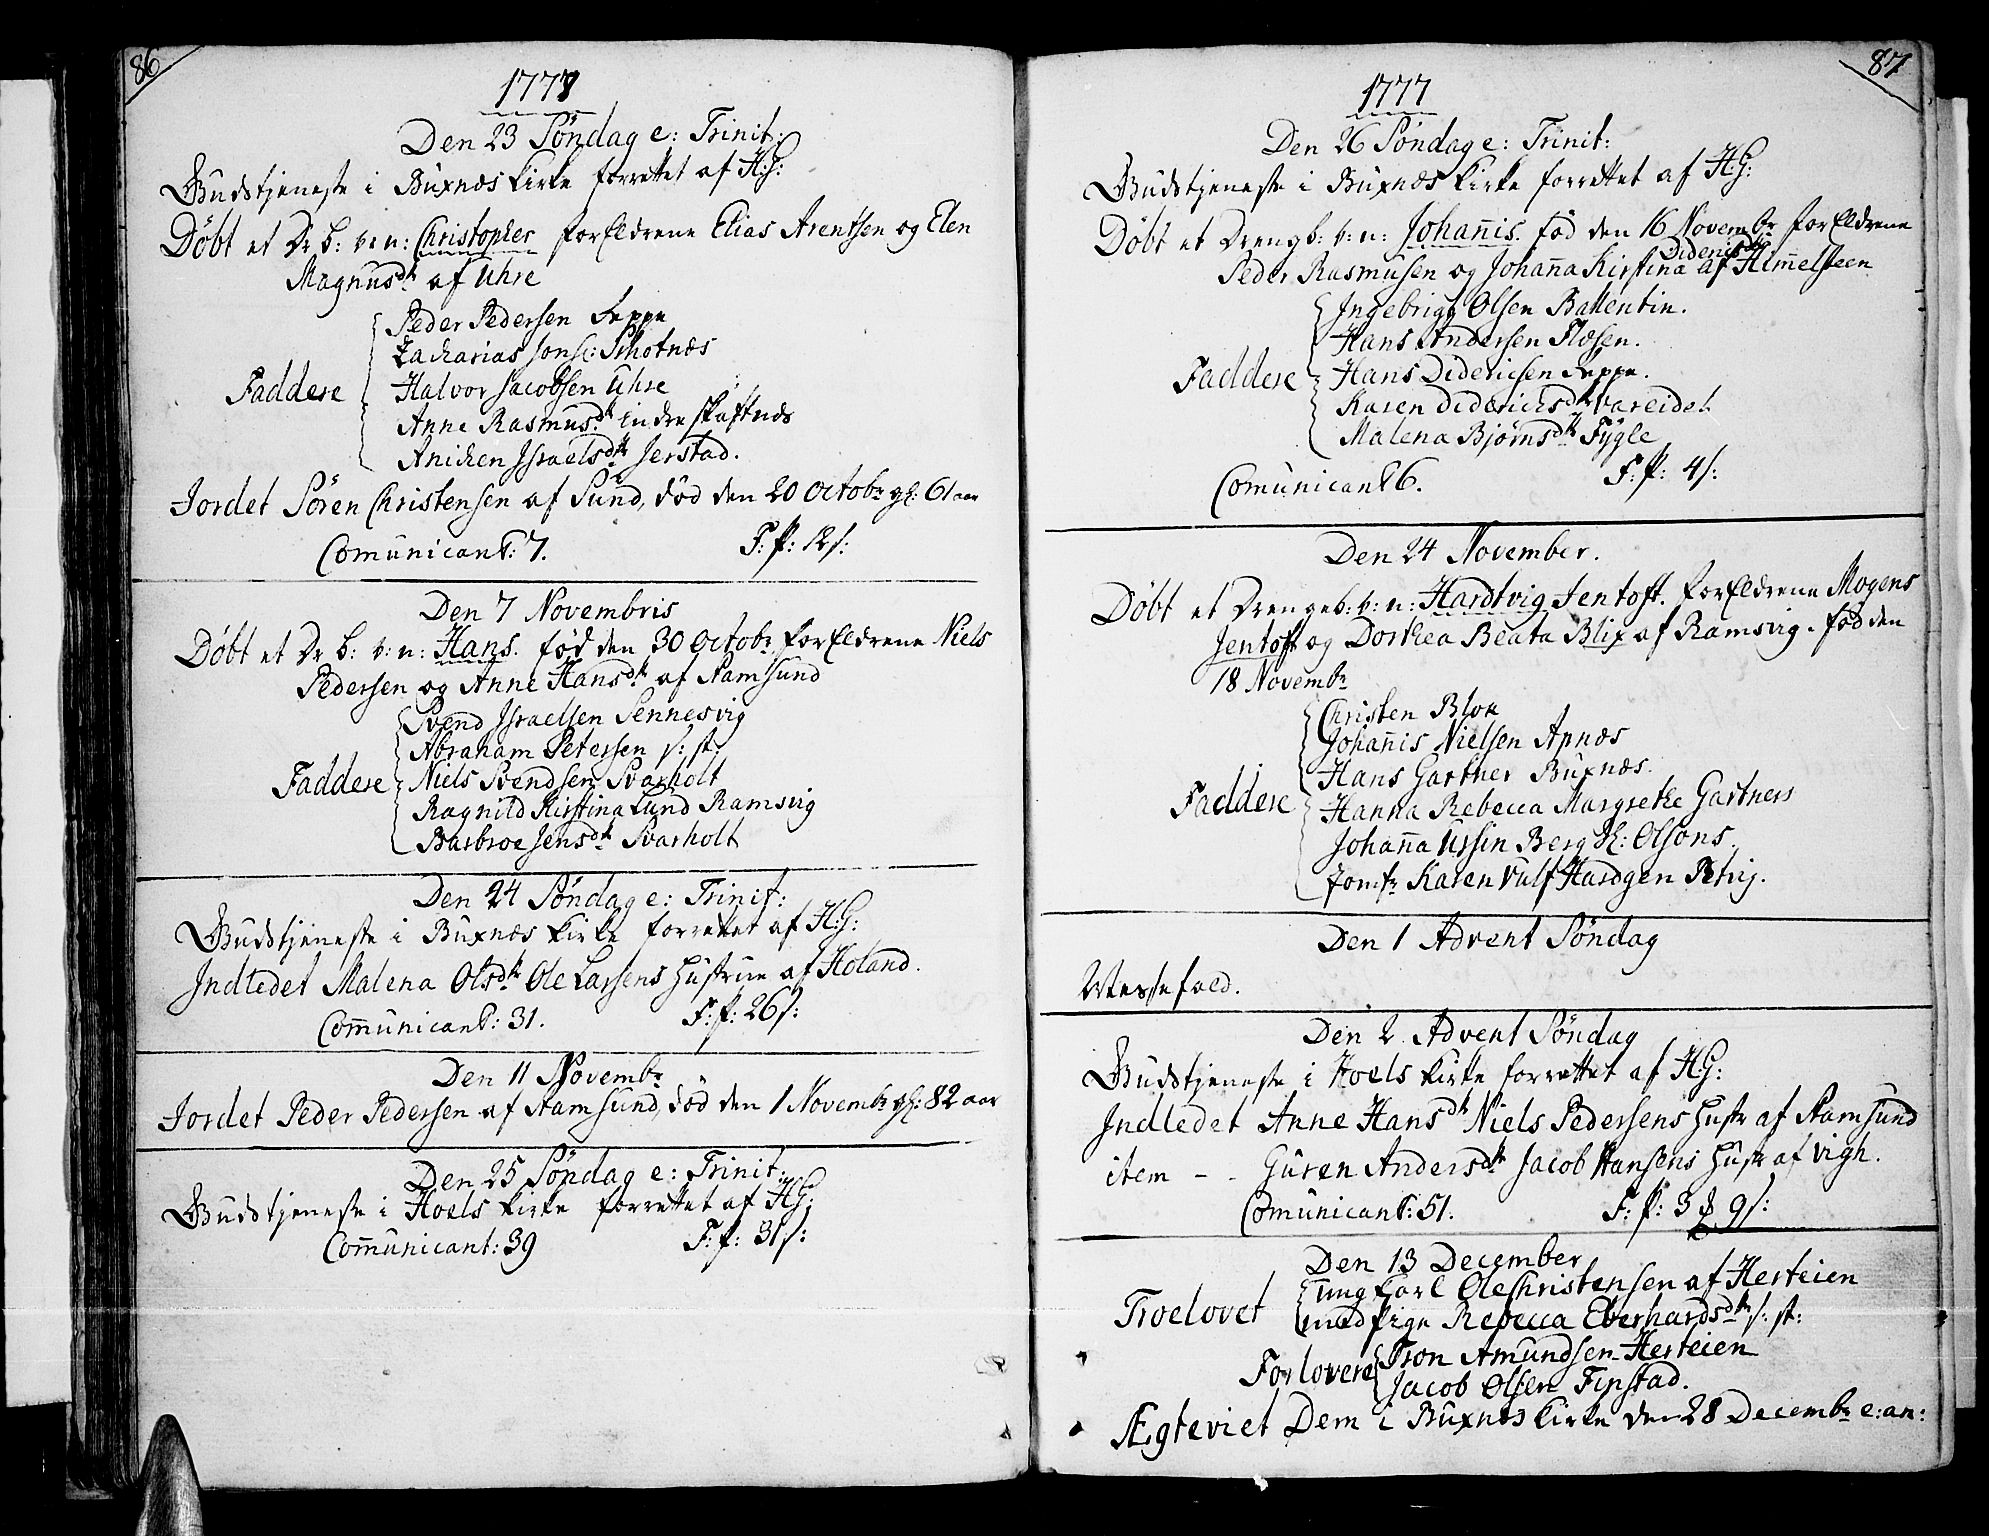 86
1777
Den 23 Söndag e: Trinit:
Gudstjeneste i Buxnæs Kirke forrettet af H:G:
Döbt et Dr b: v: n: Christopher forEldrene Elias Arentsen og Elen
Magnusdtr af Uhre
Peder Pedersen Leppe
Zacharias Jons: Schotnæs
Faddere Halvor Jacobsen Uhre
Anne Rasmusdtr indre skaftnæs
Anichen Israelsdtr Jerstad.
Jordet Sören Christensen af Sund, död den 20 Octobr gl: 61 aar
Comunicant: 7. F: p: 12 s:
Den 7 Novembris
Döbt et Dr b: v: n: Hans. föd den 30 Octobr forEldrene Niels
Pedersen og Anne Hansdtr af Stamsund
Svend Israelsen Sennesvig
Abraham Petersen s: st:
Faddere Niels Svendsen Svarholt
Ragnild Kirstina Lund Ramsvig
Barbroe Jensdtr Svarholt
Den 24 Söndag e: Trinit:
Gudstjeneste i Buxnæs Kirke forrettet af H:G:
Indledet Malena Olsdtr Ole Larsens Hustrue af Holand.
Com̅unicant: 31. F: p: 26 s:
Den 11 Novembr
Jordet Peder Pedersen af Stamsund, död den 1 Novembr gl: 82 aar
Den 25 Söndag e: Trinit:
Gudstjeneste i Hoels Kirke forrettet af HG:
Com̅unicant: 39 F: p: 31 s:
87
1777
Den 26 Söndag e: Trinit:
Gudstjeneste i Buxnæs Kirke forrettet af H:G:
Döbt et Drengb: v: n: Johan̅is. föd den 16 Novembr forEldrene
Peder Rasmusen og Johan̅a Kirstina Diderichsdtr af Him̅elsteen
Ingebrigt Olsen Ballentin.
Hans Andersen Flæsen.
Faddere Hans Diderichsen Leppe.
Karen Diderichsdtr Vareidet
Malena Bjørnsdtr Fygle
Comunicant 6. F: p: 4 s:
Den 24 November.
Döbt et Drengeb: v: n: Hardtvig Jentoft. forEldrene Mogens
Jentoft og Dorthea Beata Blix af Ramsvig. föd den
18 Novembr
Christen Blix
Johan̅is Nielsen Apnæs
Hans Gartner Buxnæs.
Faddere Hanna Rebecca Margrethe Gartners
Johan̅a Ursin Berg Sl: Olsons
Jomfr Karen Vulf Hardgen
Den 1 Advent Söndag
Messefald.
Den 2. Advent Söndag
Gudstjeneste i Hoels Kirke forrettet af HG:
Indledet Anne Hansdtr Niels Pedersens Hustr af Stamsund
item - - Guren Andersdtr Jacob Hansens Hustr af Vigh.
Comunicant: 51. F: p: 3 9 s:
Den 13 December
Troelovet ungkarl Ole Christensen af Herteien
med pige Rebecca Eberhardsdtr s: st:
Forlovere Tron Amundsen Herteien
Jacob Olsen Finstad.
Ægteviet Dem i Buxnæs Kirke den 28 Decembr e: an: